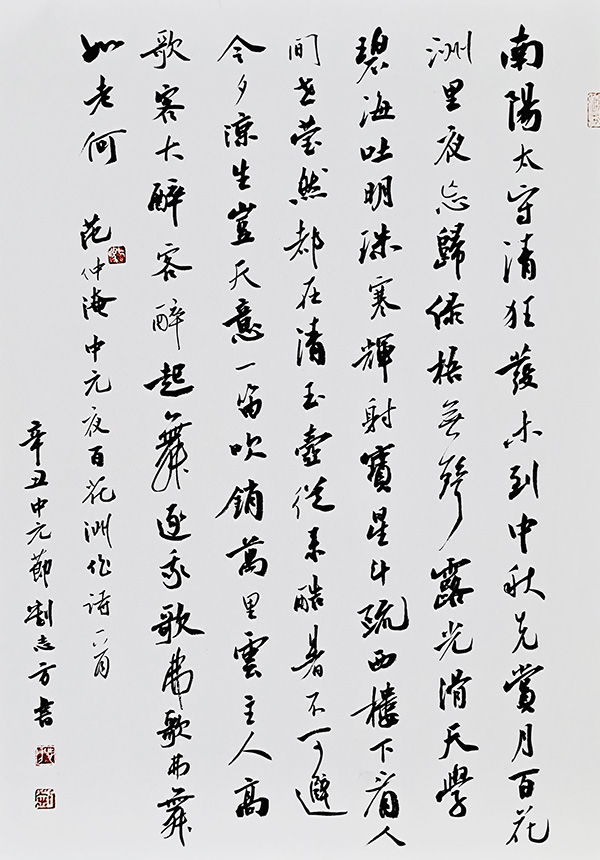 南陽太守清狂發未到中秋先賞月百花
洲里夜忘歸綠梧無聲露光滑天學
碧海吐明珠寒輝射寶星斗疏西樓下看人
間世瑩然都在清玉壺從來酷暑不可避
今夕涼生豈天意一笛吹銷萬里雲主人高
歌客大醉客醉起舞逐我歌弗歌弗舞
如老何 范仲淹中元夜百花洲作詩一首
辛丑中元節劉志方書